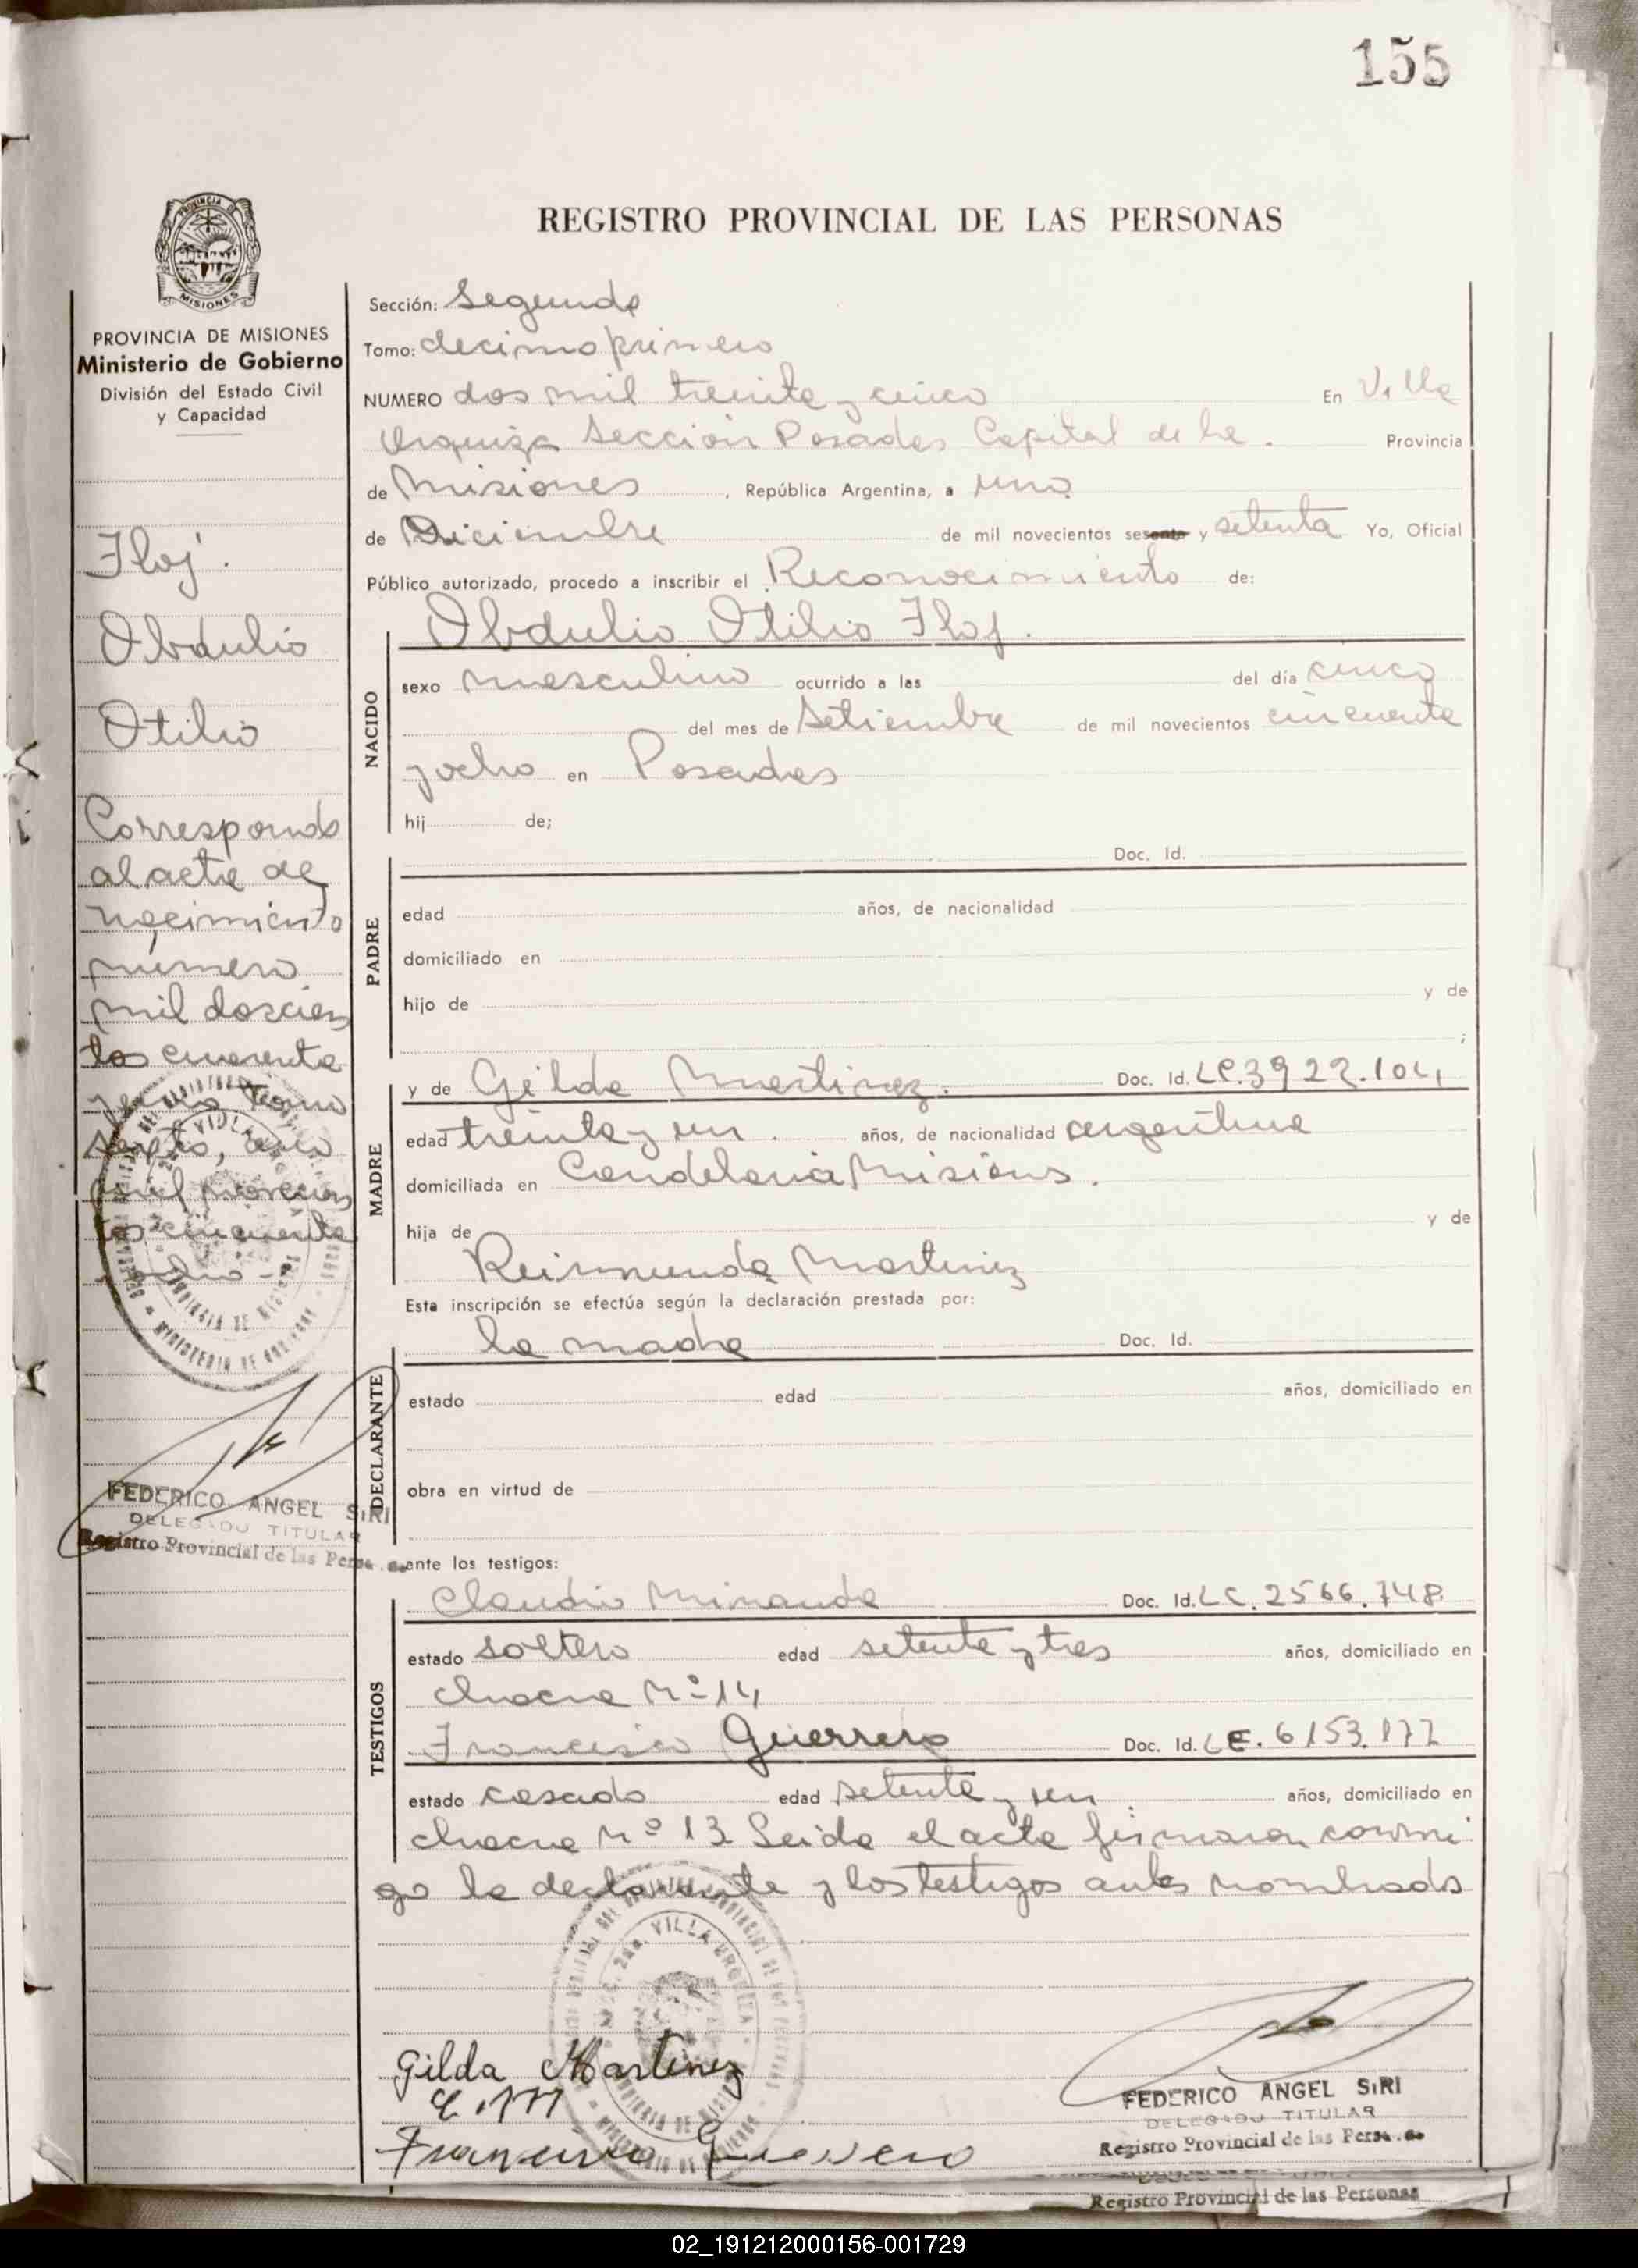 155
PROVINCIA D
MISIONES
REGISTRO PROVINCIAL DE LAS PERSONAS
PROVINCIA DE MISIONES
Ministerio de Gobierno
División del Estado Civil
y Capacidad
Obdulio
Otilio
Corresponde
al acta de
nacimiento
número
mil doscien
tos cuarenta
tomo
mil novecien
tos cincuenta
y ocho -
FEDERICO ANGEL SIRI
DELEGADO TITULAR
Registro Provincial de las Perso
Sección: Segunda
Tomo: decimo primero
NUMERO dos mil treinta y cinco En Villa
Urquiza Sección Posadas Capital de la. Provincia
de Misiones , República Argentina, a uno
de Diciembre de mil novecientos sesenta y setenta Yo, Oficial
Público autorizado, procedo a inscribir el Reconocimiento de:
Obdulio Otilio
NACIDO
sexo masculino ocurrido a las del día cinco
del mes de Setiembre de mil novecientos cincuenta
y ocho en Posadas
hij de;
PADRE
Doc. Id.
edad años, de nacionalidad
domiciliado en
hijo de y de
;
MADRE
y de Gilda Martinez. Doc. Id. LC. 3922.104
edad treinta y un. años, de nacionalidad argentina
domiciliada en Candelaria Misiones.
hija de y de
Reimunda Martinez
Esta inscripción se efectúa según la declaración prestada por:
la madre Doc. Id.
DECLARANTE
estado edad años, domiciliado en
obra en virtud de
ante los testigos:
TESTIGOS
Claudio Miranda Doc. Id. LC. 2566.748
estado soltero edad setenta y tres años, domiciliado en
chacra Nº 14
Francisco Guerrero Doc. Id. LE. 6153.177
estado casado edad setenta y un. años, domiciliado en
chacra Nº 13 Leida el acta firmaron conmi
go la declarante y los testigos antes nombrados
VILLA URQUIZA
Gilda Martinez
C.M
Francisco Guerrero
FEDERICO ANGEL SIRI
DELEGADO TITULAR
Registro Provincial de las Perso
Registro Provincial de las Personas
02_191212000156-001729